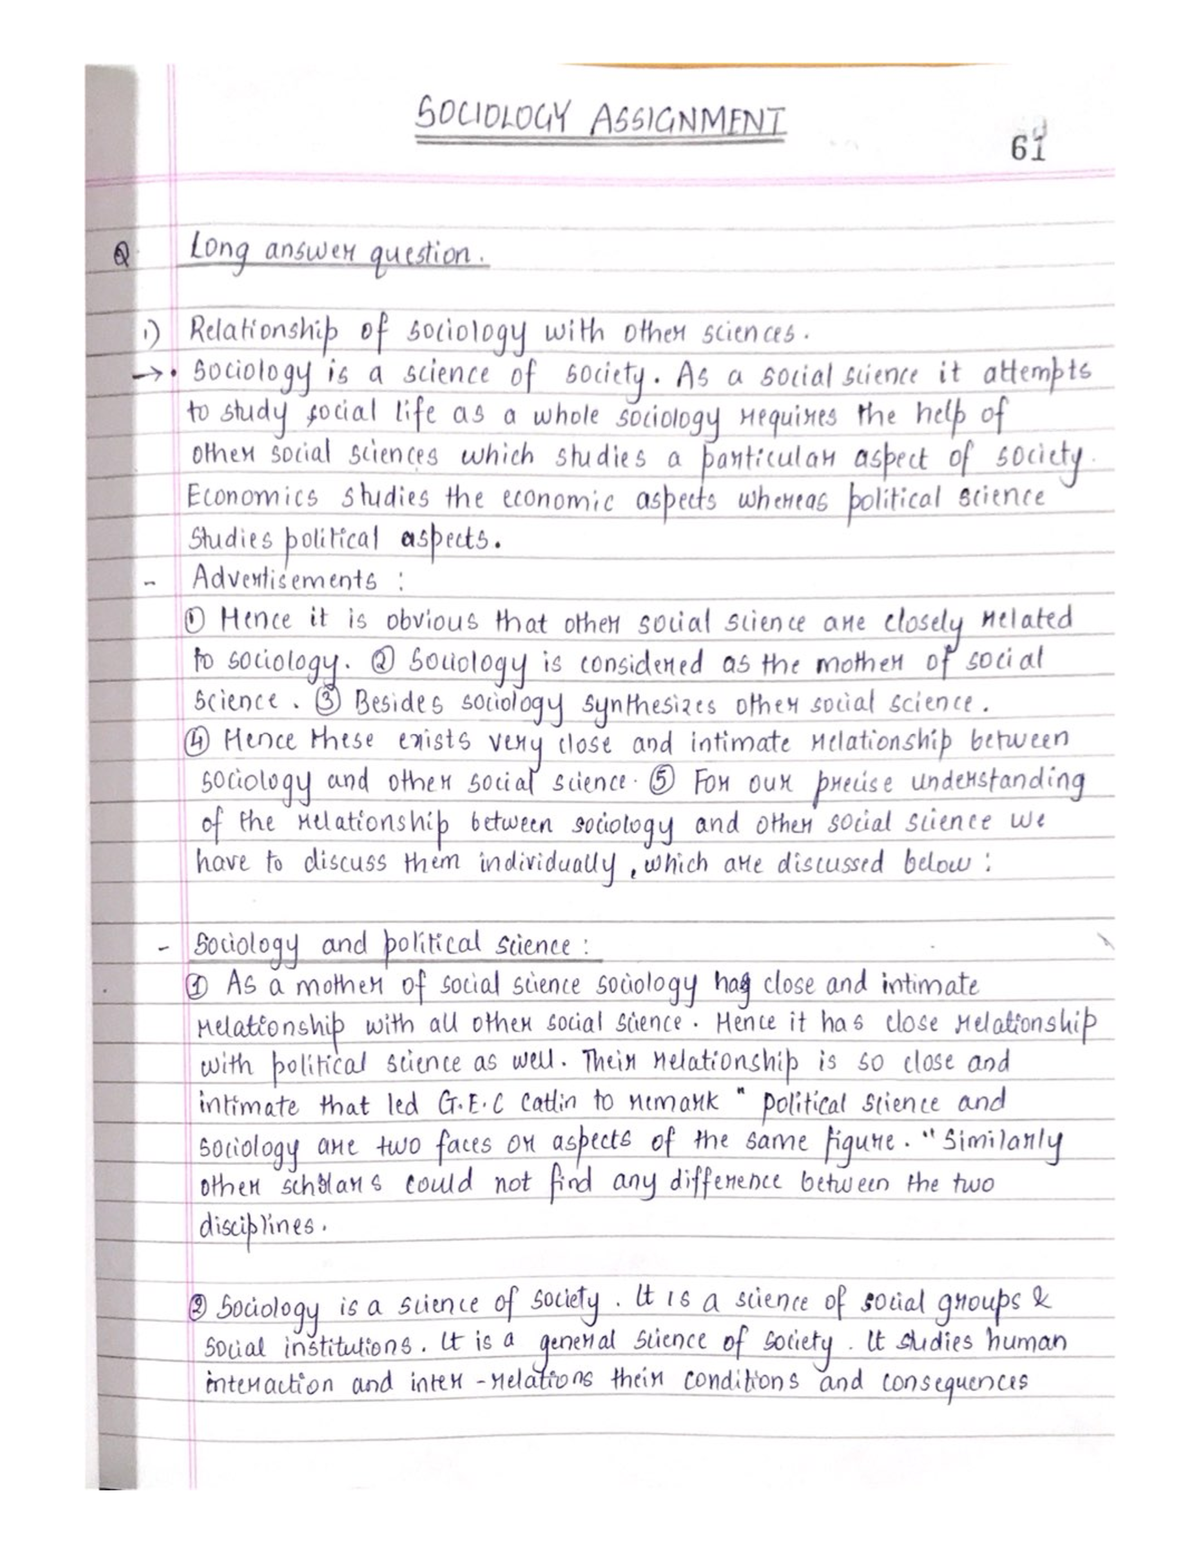 SOCIOLOGY ASSIGNMENT
61
Q Long answer question.
1) Relationship of sociology with other sciences.
→• Sociology is a science of society. As a social science it attempts
to study social life as a whole sociology requires the help of
other social sciences which studies a particular aspect of society.
Economics studies the economic aspects whereas political science
studies political aspects.
- Advertisements :
① Hence it is obvious that other social science are closely related
to sociology. ② Sociology is considered as the mother of social
science. ③ Besides sociology synthesizes other social science.
④ Hence these exists very close and intimate relationship between
sociology and other social science. ⑤ For our precise understanding
of the relationship between sociology and other social science we
have to discuss them individually, which are discussed below :
- Sociology and political science :
① As a mother of social science sociology has close and intimate
relationship with all other social science. Hence it has close relationship
with political science as well. Their relationship is so close and
intimate that led G.E.C Catlin to remark " political science and
sociology are two faces or aspects of the same figure. " Similarly
other scholars could not find any difference between the two
disciplines.
② Sociology is a science of society. It is a science of social groups &
social institutions. It is a general science of society. It studies human
interaction and inter-relations their conditions and consequences